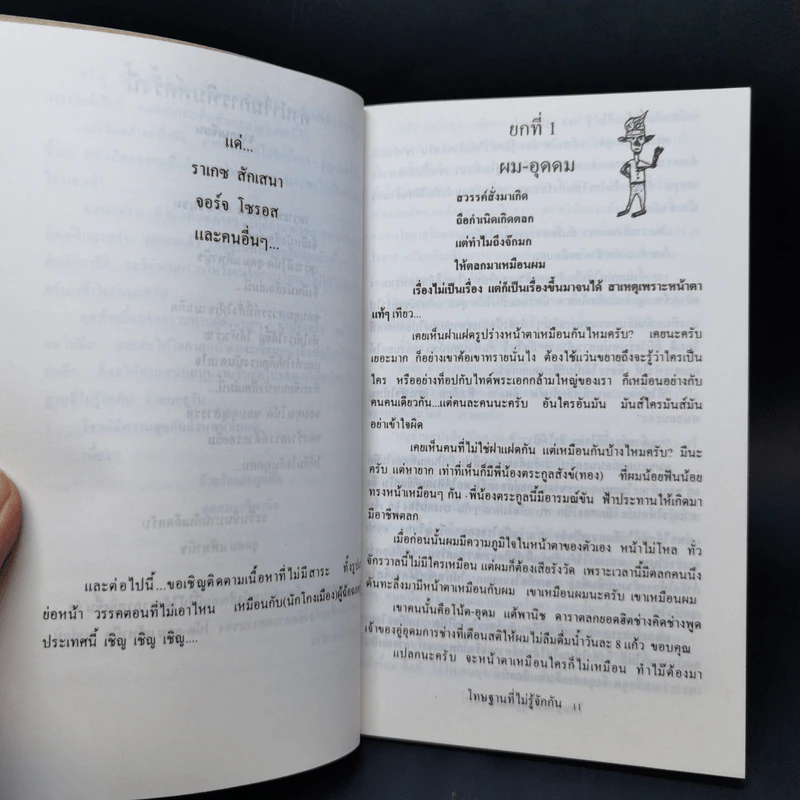 แด่...
ราเกซ สักเสนา
จอร์จ โซรอส
และคนอื่นๆ...
และต่อไปนี้...ขอเชิญติดตามเนื้อหาที่ไม่มีสาระ ทั้งรูป
ย่อหน้า วรรคตอนที่ไม่เอาไหน เหมือนกับ(นักโกงเมือง)
ประเทศนี้ เชิญ เชิญ เชิญ....
ยกที่ 1
ผม-อุดดม
สวรรค์สั่งมาเกิด
ถือกำเนิดเกิดตลก
แต่ทำไมถึงจั๊กมก
ให้ตลกมาเหมือนผม
เรื่องไม่เป็นเรื่อง แต่ก็เป็นเรื่องขึ้นมาจนได้ สาเหตุเพราะหน้าตา
แท้ๆ เทียว...
เคยเห็นฝาแฝดรูปร่างหน้าตาเหมือนกันไหมครับ? เคยนะครับ
เยอะมาก ก็อย่างเขาค้อเขาทรายนั่นไง ต้องใช้แว่นขยายถึงจะรู้ว่าใครเป็น
ใคร หรืออย่างท็อปกับไทด์พระเอกกล้ามใหญ่ของเรา ก็เหมือนอย่างกับ
คนคนเดียวกัน...แต่คนละคนนะครับ อันใครอันมัน มันส์ใครมันส์มัน
อย่าเข้าใจผิด
เคยเห็นคนที่ไม่ใช่ฝาแฝดกัน แต่เหมือนกันบ้างไหมครับ? มีนะ
ครับ แต่หายาก เท่าที่เห็นก็มีพี่น้องตระกูลสังข์(ทอง) ที่ผมน้อยฟันน้อย
ทรงหน้าเหมือนๆ กัน พี่น้องตระกูลนี้มีอารมณ์ขัน ฟ้าประทานให้เกิดมา
มีอาชีพตลก
เมื่อก่อนนั้นผมมีความภูมิใจในหน้าตาของตัวเอง หน้าไม่โหล ทั่ว
จักรวาลนี้ไม่มีใครเหมือน แต่ผมก็ต้องเสียรังวัด เพราะเวลานี้มีตลกคนนึง
ดันทะลึ่งมามีหน้าตาเหมือนกับผม เขาเหมือนผมนะครับ เขาเหมือนผม
เขาคนนั้นคือโน้ต-อุดม แต้พานิช ดาราตลกยอดฮิตช่างคิดช่างพูด
เจ้าของอู่อุดมการช่างที่เตือนสติให้ผมไม่ลืมดื่มน้ำวันละ 8 แก้ว ขอบคุณ
แปลกนะครับ จะหน้าตาเหมือนใครก็ไม่เหมือน ทำไม๊ต้องมา
โทษฐานที่ไม่รู้จักกัน 11